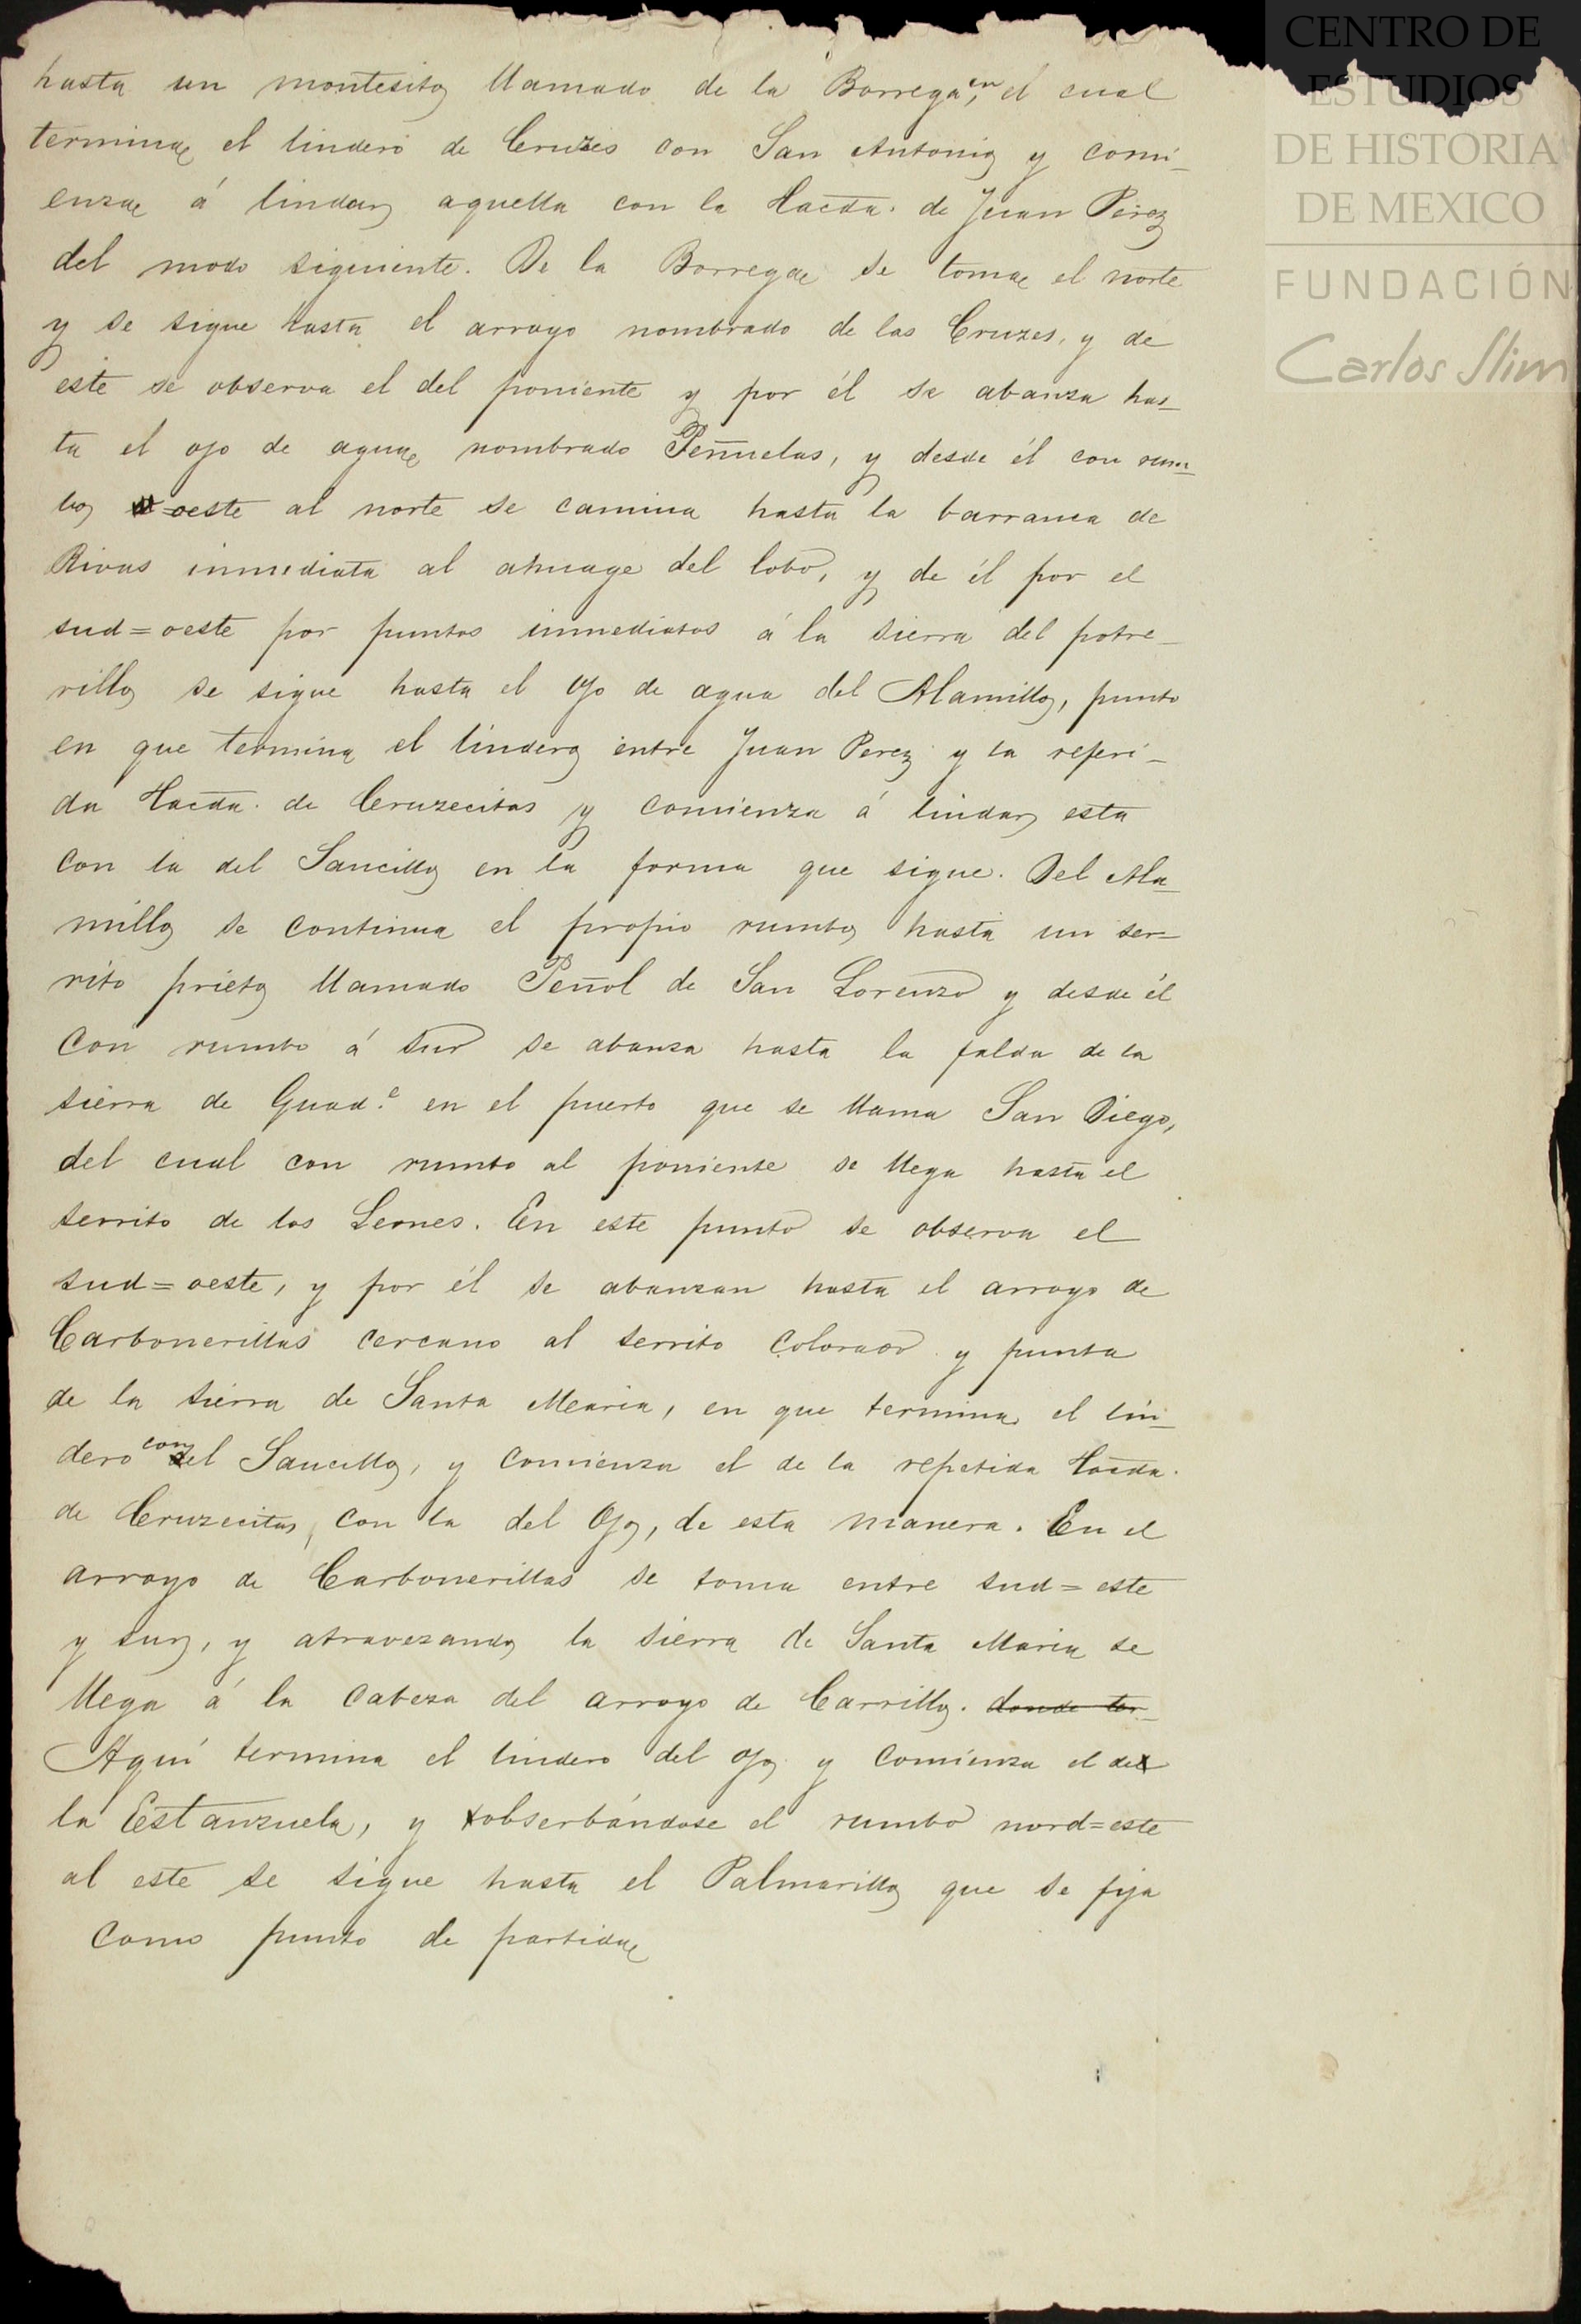 CENTRO DE
ESTUDIOS
DE HISTORIA
DE MEXICO
FUNDACIÓN
Carlos Slim
hasta un montesito llamado de la Borrega, en el cual
termina el lindero de Cruzes con San Antonio y comi-
enza á lindar aquella con la Hacda. de Juan Pérez
del modo siguiente. De la Borrega se toma el norte
y se sigue hasta el arroyo nombrado de las Cruzes, y de
este se observa el del poniente y por él se abanza has-
ta el ojo de agua nombrado Peñuelas, y desde él con rum-
bo =oeste al norte se camina hasta la barranca de
Rivas inmediata al ahuage del lobo, y de él por el
sud=oeste por puntos inmediatos á la sierra del potre-
rillo se sigue hasta el Ojo de agua del Alamillo, punto
en que termina el lindero entre Juan Perez y la referi-
da Hacda. de Cruzecitas y comienza á lindar esta
con la del Saucillo en la forma que sigue. Del Ala-
millo se continua el propio rumbo hasta un ser-
rito prieto llamado Peñol de San Lorenzo y desde él
con rumbo á sur se abanza hasta la falda de la
sierra de Guad.e en el puerto que se llama San Diego,
del cual con rumbo al poniente se llega hasta el
serrito de los Leones. En este punto se observa el
sud=oeste, y por él se abanzan hasta el arroyo de
Carbonerillas cercano al serrito Colorado y punta
de la sierra de Santa Maria, en que termina el lin-
dero con el Saucillo, y comienza el de la repetida Hacda.
de Cruzecitas, con la del Ojo, de esta manera. En el
arroyo de Carbonerillas se toma entre sud=este
y sur, y atravezando la sierra de Santa Maria se
llega á la Cabeza del arroyo de Carrillo. donde ter-
Aquí termina el lindero del ojo y comienza el de
la Estanzuela, y obserbándose el rumbo nord=este
al este se sigue hasta el Palmarillo que se fija
como punto de partida